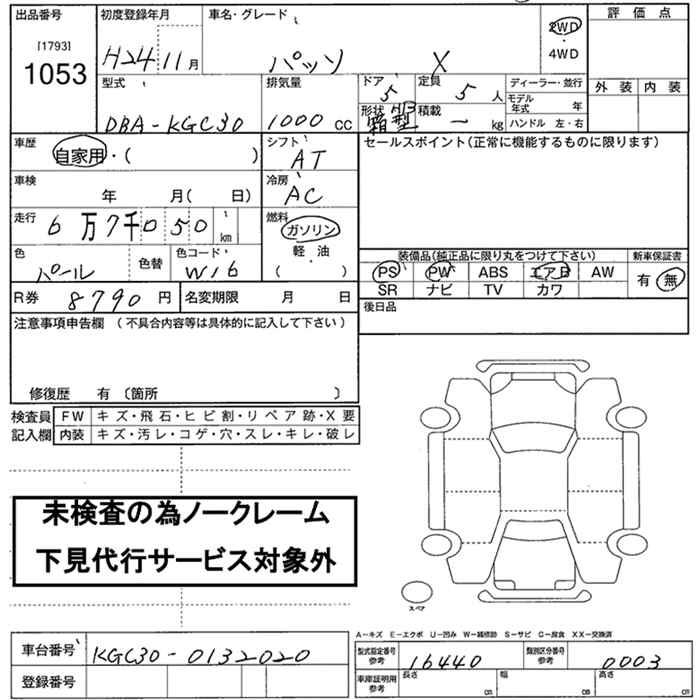 出品番号 初度登録年月 車名・グレード 評価点
[1793]
1053
H24 11月 パッソ X
2WD
・
4WD
外装 内装
型式 排気量 ドア 定員 ディーラー・並行
DBA-KGC30 1000 cc 5 5 人
形状 H/B 積載 モデル年式 年
箱型 - kg ハンドル 左・右
車歴 シフト セールスポイント(正常に機能するものに限ります)
自家用・( ) AT
車検 冷房
年 月( 日) AC
走行 燃料
6万7千050 km ガソリン
軽・油
( )
色 色替 色コード
パール W16
装備品(純正品に限り丸をつけて下さい) 新車保証書
PS PW ABS エアB AW 有 無
SR ナビ TV カワ
R券 8790 円 名変期限 月 日
後日品
注意事項申告欄 (不具合内容等は具体的に記入して下さい)
修復歴 有 〔箇所 〕
検査員 FW キズ・飛石・ヒビ割・リペア跡・X要
記入欄 内装 キズ・汚レ・コゲ・穴・スレ・キレ・破レ
未検査の為ノークレーム
下見代行サービス対象外
スペア
A-キズ E-エクボ U-凹み W-補修跡 S-サビ C-腐食 XX-交換済
車台番号 KGC30-0132020
登録番号
型式指定番号 参考 16440 類別区分番号 参考 0003
車庫証明用 参考 長さ cm 幅 cm 高さ cm